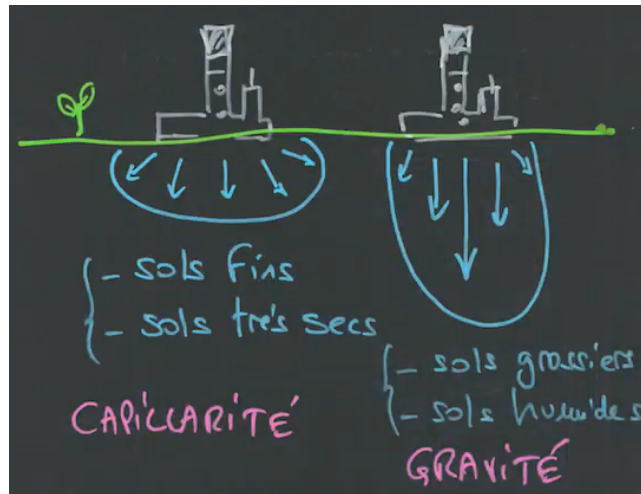 - sols fins
- sols très secs
CAPILLARITÉ
- sols grossiers
- sols humides
GRAVITÉ